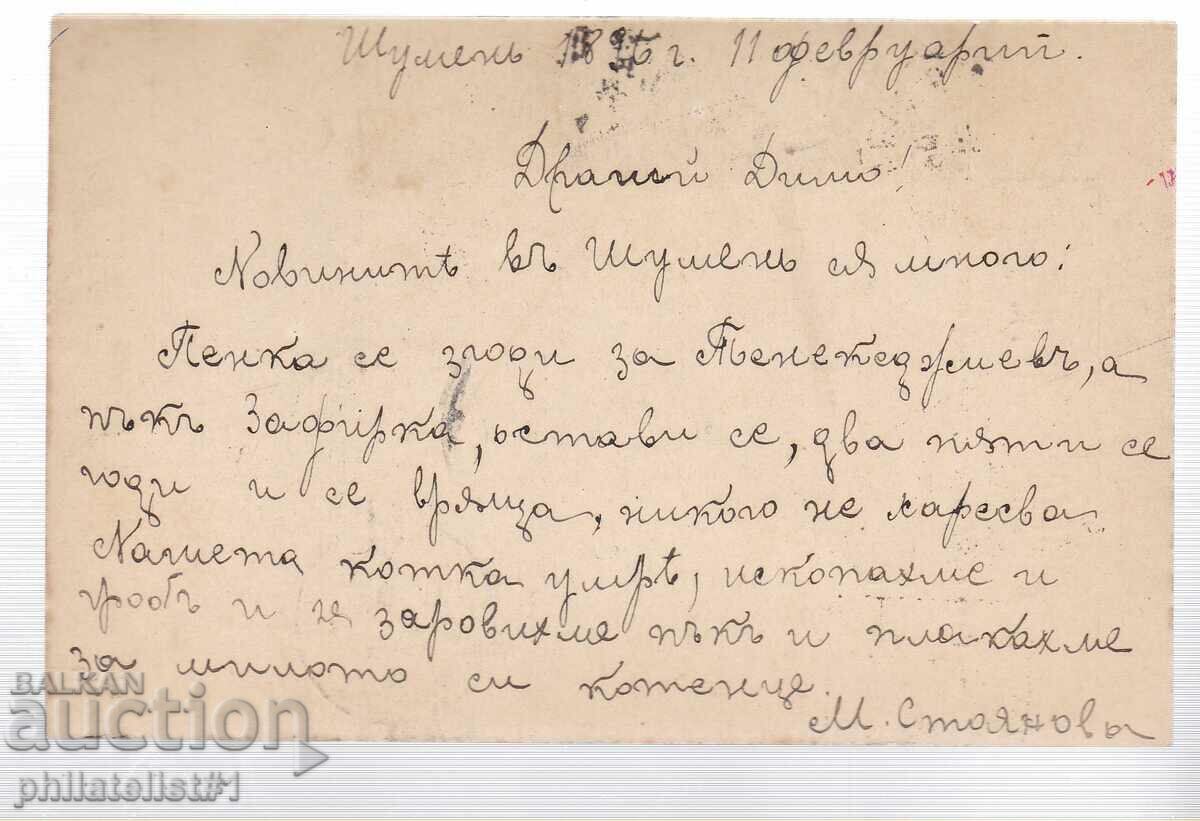 Шуменъ г. 11 февруарий.
Драгий Димо!
Новинитѣ въ Шуменъ сѫ много:
Пенка се згоди за Тенекеджиевъ, а
пъкъ Зафирка, остави се, два пѫти се
годи и се врѫща, никого не харесва
Нашета котка умрѣ, ископахме и
гробъ и ѭ заровихме пъкъ и плакахме
за милото си котенце.
М. Стоянова
BALKAN
auction
philatelist#1